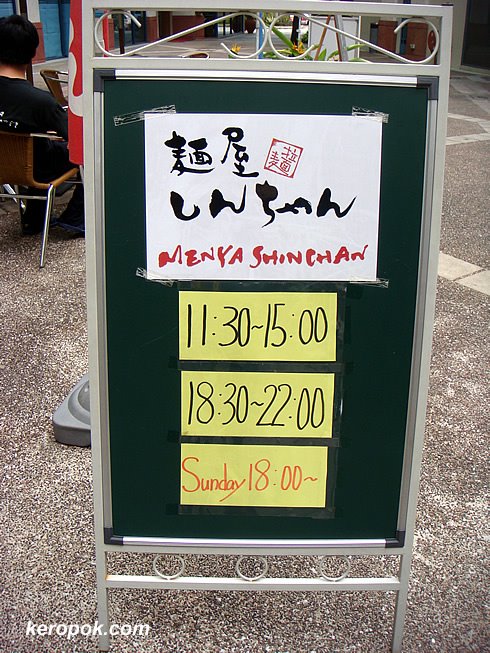 麺屋
しんちゃん
MENYA SHINCHAN
11:30~15:00
18:30~22:00
Sunday 18:00~
keropok.com